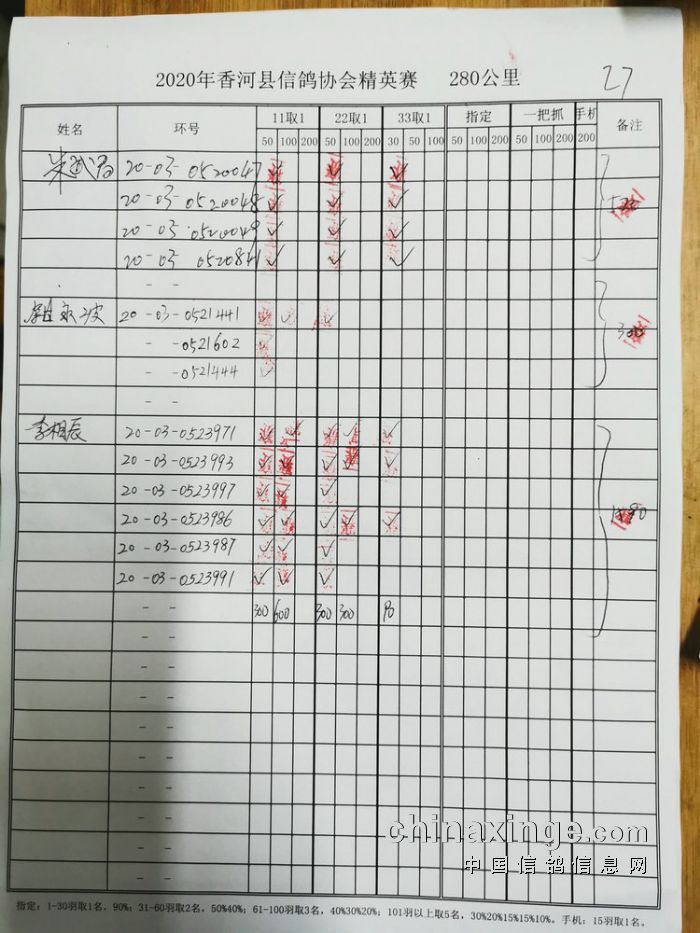 27
2020年香河县信鸽协会精英赛 280公里
姓名 环号 11取1 22取1 33取1 指定 一把抓 手机 备注
50 100 200 50 100 200 30 50 100 50 100 200 50 100 200 200
20-03-0520047
20-03-0520048
20-03-0520049
20-03 0520841
- -
20-03-0521441 300
- -0521602
- -0521444
- -
李相辰 20-03-0523971
20-03-0523993
20-03-0523997
20-03-0523986
20-03-0523987
20-03-0523991
- - 300 600 300 300 90
- -
- -
- -
- -
- -
- -
- -
- -
- -
- -
chinaxinge.com
中国信鸽信息网
指定：1-30羽取1名，90%；31-60羽取2名，50%40%；61-100羽取3名，40%30%20%；101羽以上取5名，30%20%15%15%10%。手机：15羽取1名。